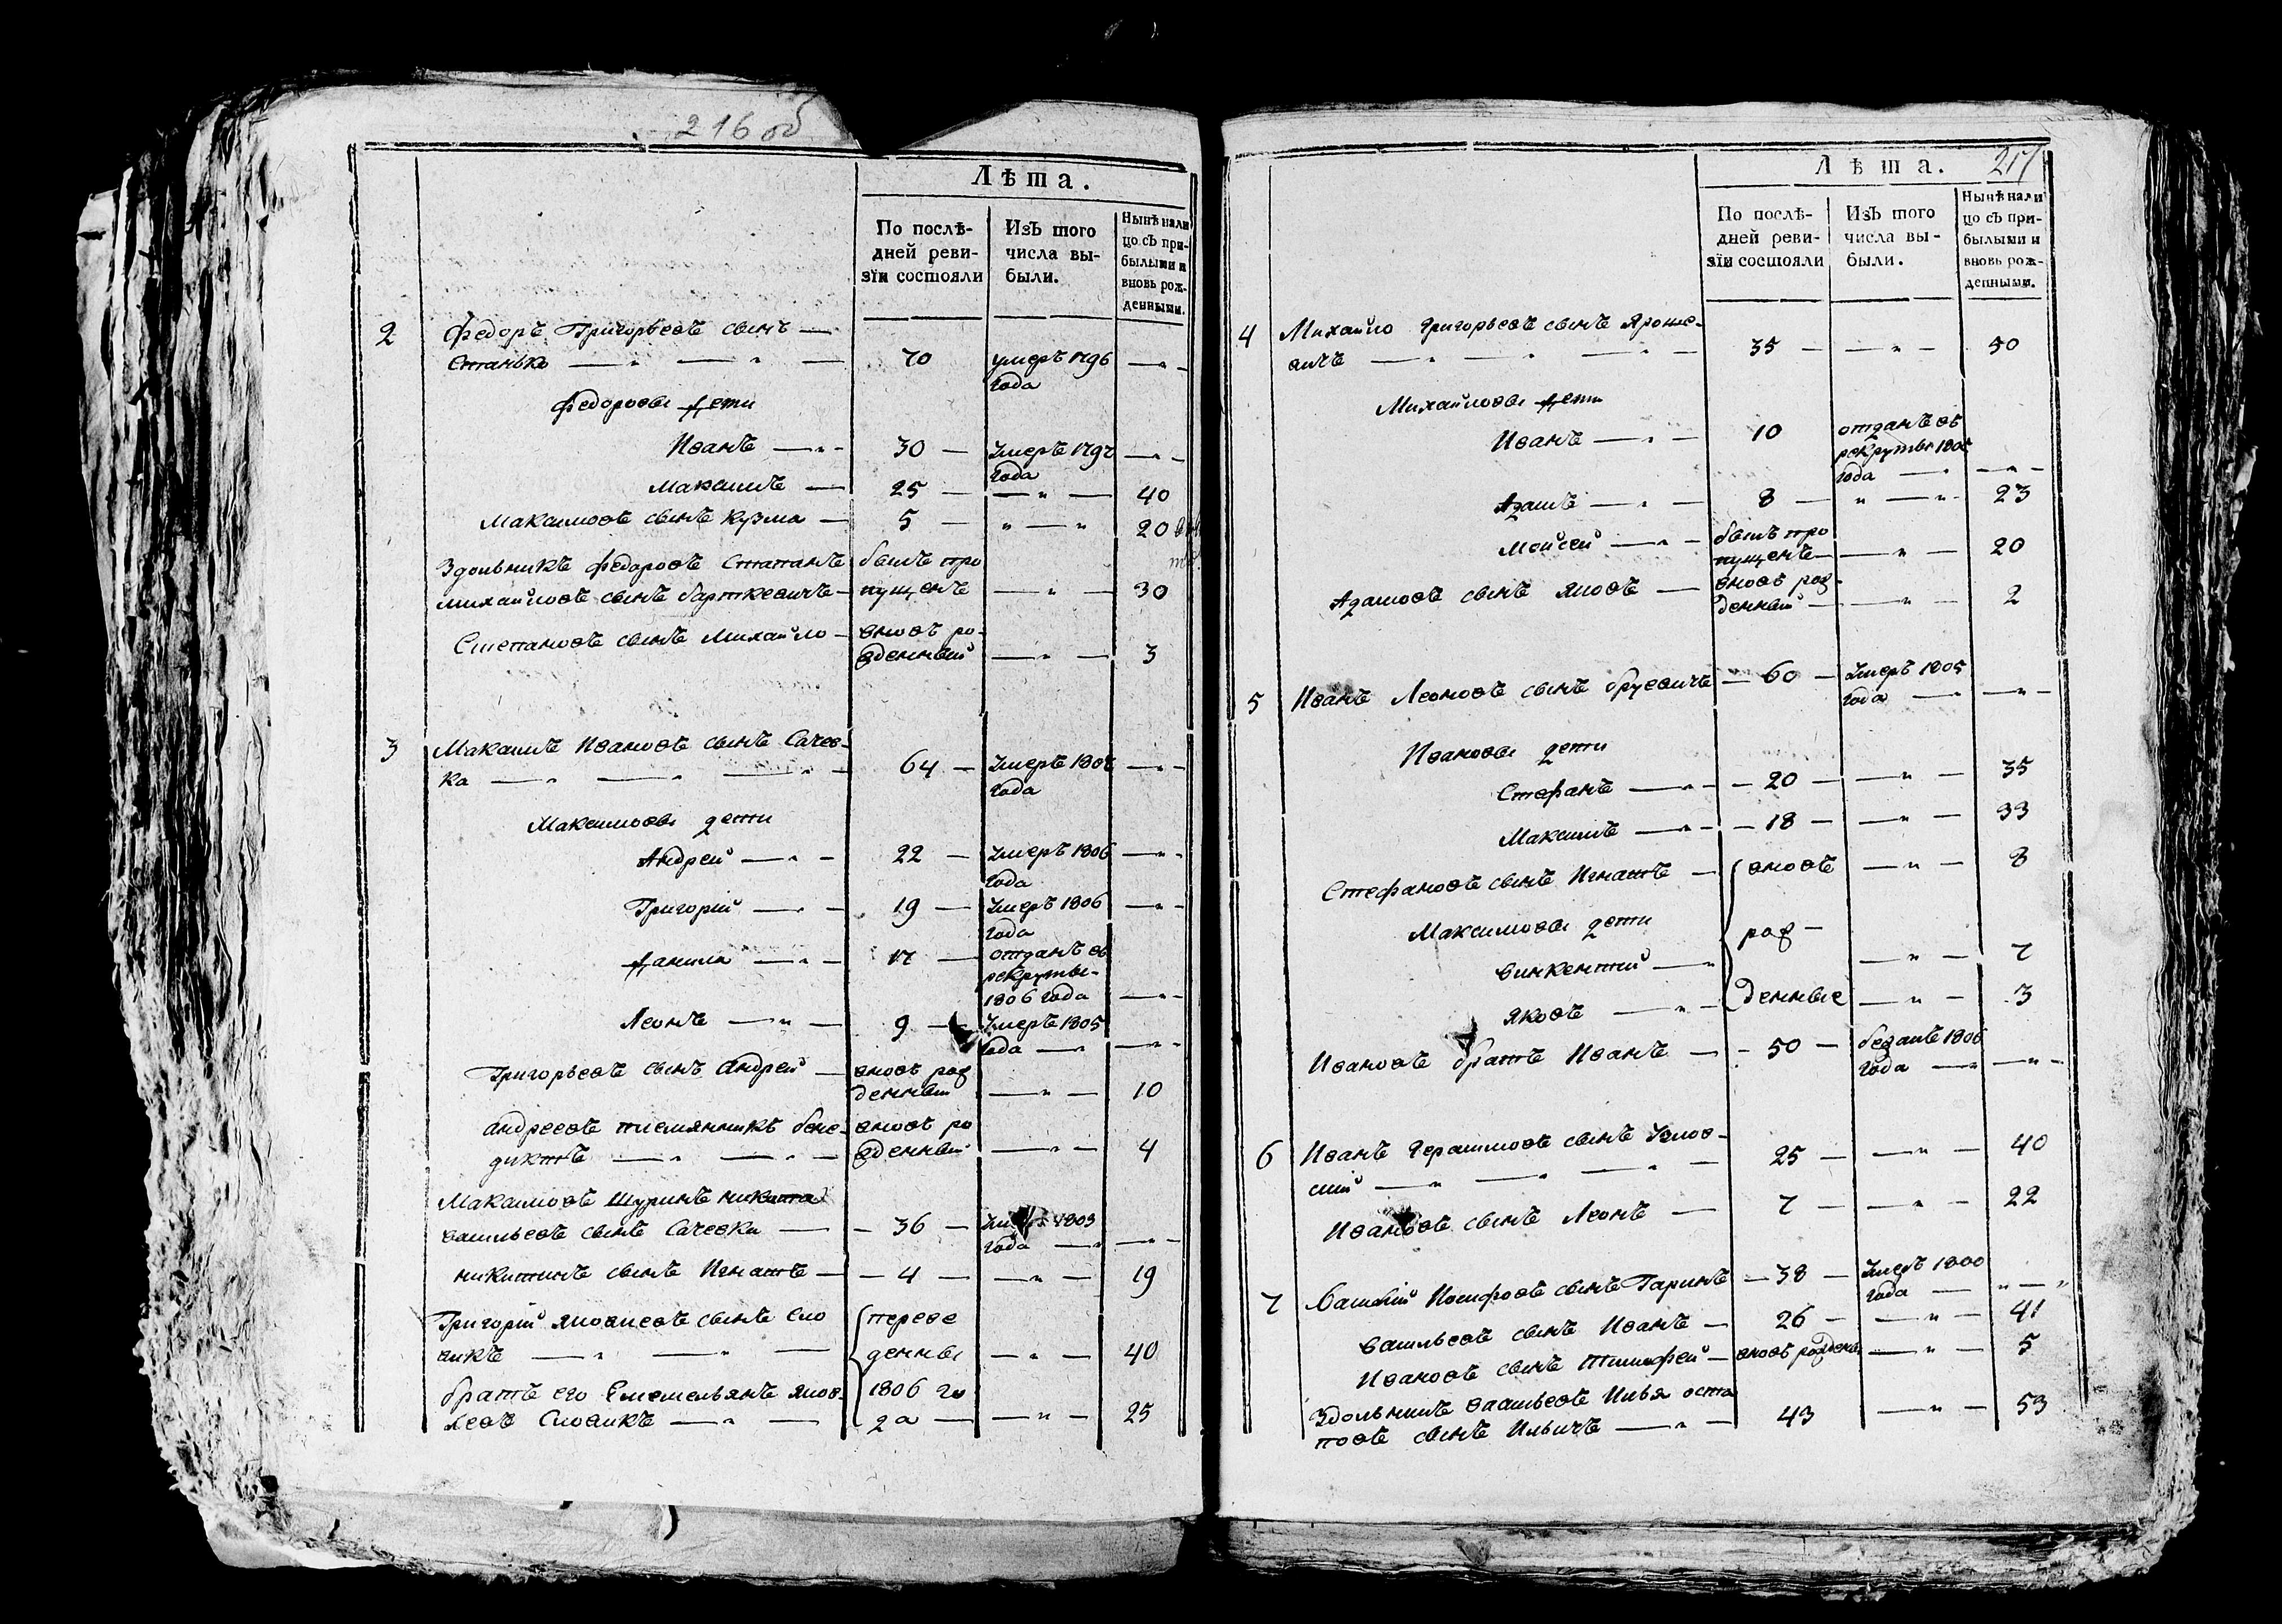 216 об
Лѣта.
По послѣ-
дней реви-
зїи состояли
Изъ того
числа вы-
были.
Нынѣ нали
цо съ при-
былыми и
вновь рож-
денными.
2 Федоръ Григорьевъ сынъ —
Станько — „ — „ — 70 умеръ 1796 — „ —
года
Федоровы дети
Иванъ — „ — 30 — Умеръ 1797 — „ —
года
Максимъ — 25 — — „ — 40
Максимовъ сынъ Кузма — 5 — „ — „ 20
Здольникъ Федоровъ Степанъ былъ про
Михайловъ сынъ Барткевичъ — пущенъ — „ — 30
Степановъ сынъ Михайло — вновъ ро-
жденный — „ — 3
3 Максимъ Ивановъ сынъ Сачев-
ка — „ — „ — „ — 64 — Умеръ 1806 — „ —
года
Максимовы дети
Андрей — „ — 22 — Умеръ 1806 — „ —
года
Григорій — „ — 19 — Умеръ 1806 — „ —
года
Данила — „ — 17 — отданъ въ
рекруты-
1806 года — „ —
Леонъ — „ — 9 — Умеръ 1805
года — „ — „ —
Григорьевъ сынъ Андрей — вновъ рож
денный — „ — 10
Андреевъ племянникъ Бене- вновъ ро
диктъ — „ — „ — жденный — „ — 4
Максимовъ Шуринъ Никита
Васильевъ сынъ Сачевка — - 36 — Умеръ 1803
года — „ — „ —
Никитинъ сынъ Игнатъ — - 4 — — „ — 19
Григорій Яковлевъ сынъ Сло переве
викъ — „ — „ — денны — „ — 40
братъ его Емельянъ Яков- 1806 го
левъ Словикъ — „ — да — — „ — 25
217
Лѣта.
По послѣ-
дней реви-
зїи состояли
Изъ того
числа вы-
были.
Нынѣ нали
цо съ при-
былыми и
вновь рож-
денными.
4 Михайло Григорьевъ сынъ Яроше-
вичъ — „ — „ — „ — 35 — — „ — 50
Михайловы дети
Иванъ — „ — 10 отданъ въ
рекруты 1805
года — „ — „ —
Адамъ — „ — 8 — „ — „ — 23
Мойсей — „ — былъ про
пущенъ — — „ — 20
Адамовъ сынъ Яковъ — вновъ рож-
денный — — „ — 2
5 Иванъ Леоновъ сынъ Бруевичъ — 60 — Умеръ 1805
года — „ — „ —
Ивановы дети
Стефанъ — „ — - 20 — — „ — 35
Максимъ — „ — - 18 — — „ — 33
Стефановъ сынъ Игнатъ — вновъ — „ — 8
Максимовы дети рож —
Винкентій — „ — „ — 7
Яковъ — „ — денные — „ — 3
Ивановъ братъ Иванъ — - 50 — бежалъ 1806
года — „ — „ —
6 Иванъ Герасимовъ сынъ
— „ — „ — „ — 25 — — „ — 40
Ивановъ сынъ Леонъ — 7 — — „ — 22
7 Василій Иосифовъ сынъ Гаринъ — 38 — Умеръ 1800
года — „ — „
Васильевъ сынъ Иванъ — 26 — — „ — 41
Ивановъ сынъ Тимофей — вновъ рожден — „ — 5
Здольникъ Васильевъ Илья Оста
повъ сынъ Ильичъ — „ — 43 — „ — 53